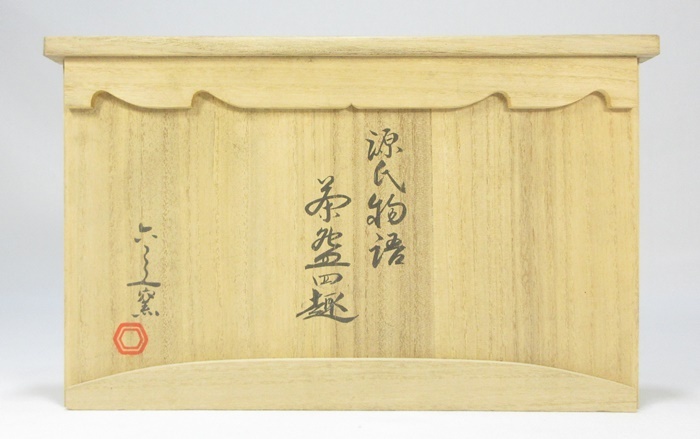 源氏物語
茶盌四趣
六兵衛窯